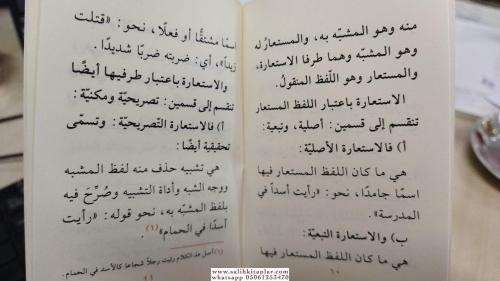 منه وهو المشبّه به، والمستعارُ له
وهو المشبّه وهما طرفا الاستعارة،
والمستعار وهو اللّفظ المنقولُ.
الاستعارة باعتبار اللفظ المستعار
تنقسم إلى قسمين: أصلية، وتبعية:
أ) فالاستعارة الأصليّة:
هي ما كان اللفظ المستعار فيها
اسمًا جامدًا، نحو: «رأيت أسداً في
المدرسة».
ب) والاستعارة التبعيّة:
هي ما كان اللفظ المستعار فيها
١٠
اسمًا مشتقًّا أو فعلًا، نحو: «قتلت
زيداً»، أي: ضربته ضربًا شديدًا.
والاستعارة باعتبار طرفيها أيضًا
تنقسم إلى قسمين: تصريحيّة ومكنيّة:
أ) فالاستعارة التّصريحيّة: وتسمّى
تحقيقية أيضًا:
هي تشبيه حذف منه لفظ المشبه
ووجه الشبه وأداة التشبيه وصُرِّحَ فيه
بلفظ المشبّه به، نحو قوله: «رأيت
أسدًا في الحمام»(١).
(١) أصل هذ الكلام رايت رجلاً شجاعا كالأسد في الحمام.
١١
www.salihkitaplar.com
whatsapp 05061253470